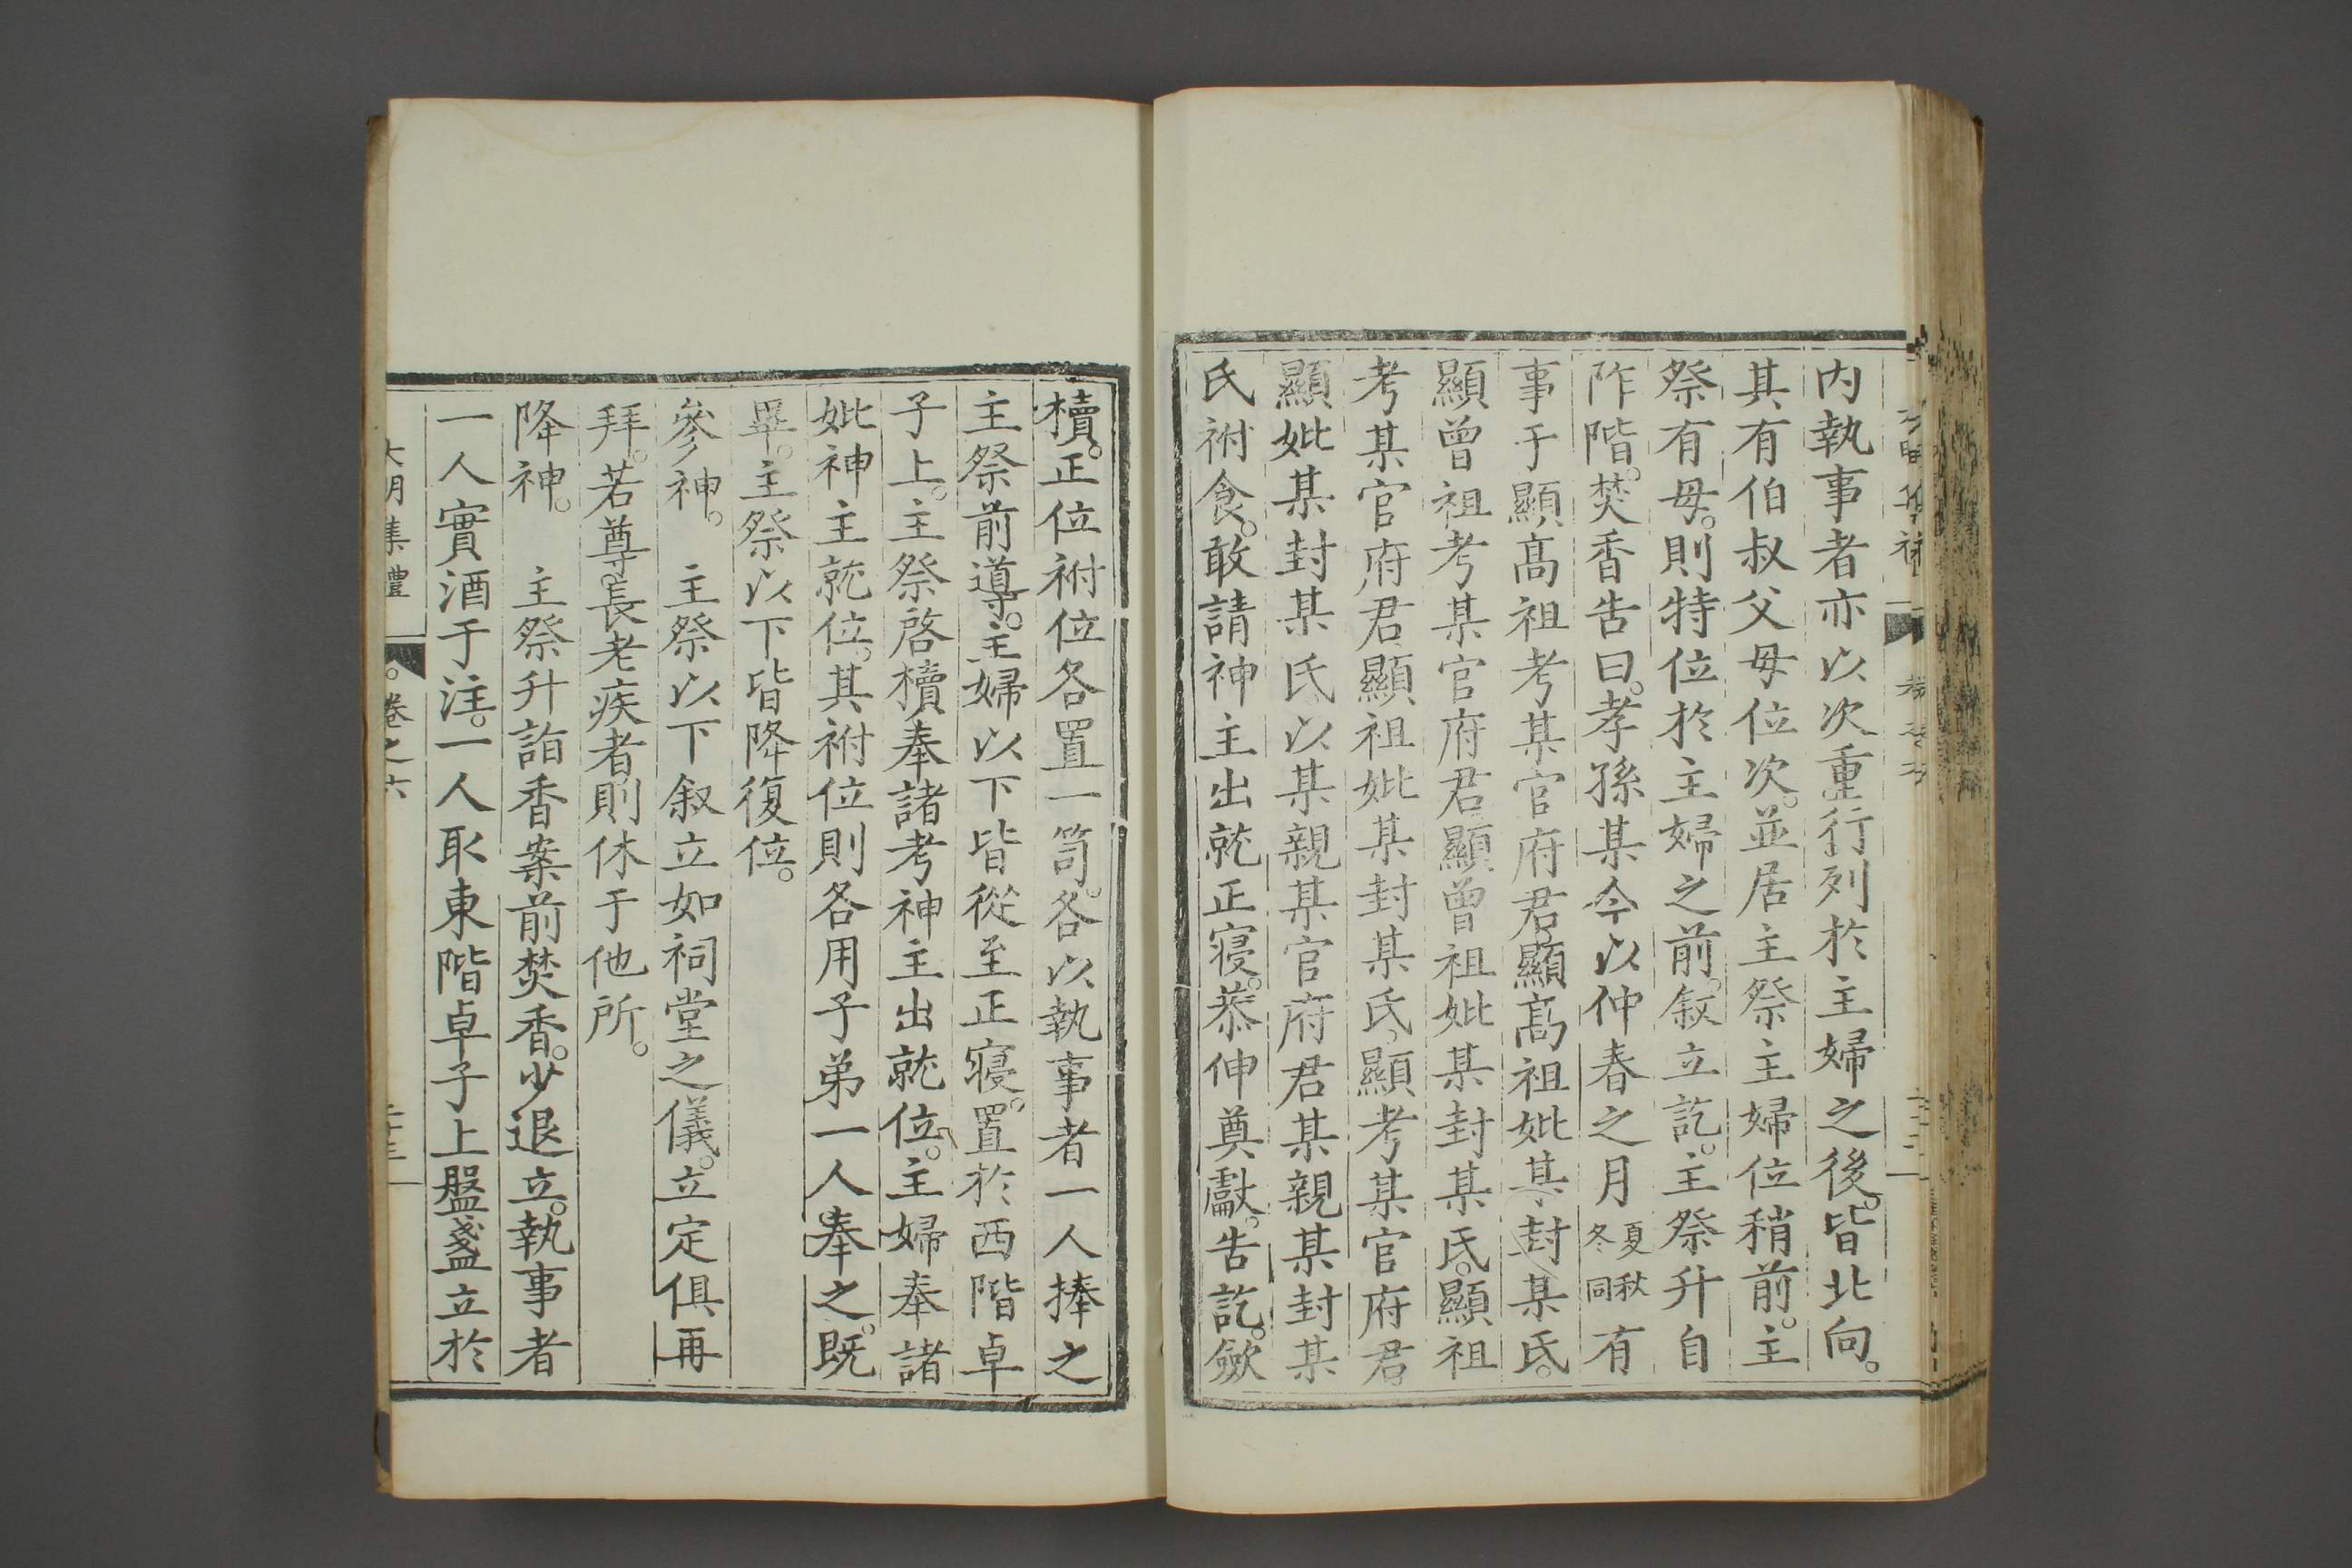 內執事者亦以次重行列於主婦之後。皆北向。
其有伯叔父母位次。並居主祭主婦位稍前。主
祭有母。則特位於主婦之前。叙立訖。主祭升自
阼階。焚香告曰。孝孫某今以仲春之月夏秋冬同有
事于顯高祖考某官府君顯高祖妣某封某氏。
顯曾祖考某官府君顯曾祖妣某封某氏。顯祖
考某官府君顯祖妣某封某氏。顯考某官府君。
顯妣某封某氏以某親某官府君某親某封某
氏祔食。敢請神主出就正寢。恭伸奠獻。告訖。斂
櫝。正位祔位各置一笥。各以執事者一人捧之
主祭前導。主婦以下皆從至正寢。置於西階卓
子上。主祭啓櫝奉諸考神主出就位。主婦奉諸
妣神主就位。其祔位則各用子弟一人奉之。既
畢。主祭以下皆降復位。
參神。　主祭以下叙立如祠堂之儀。立定俱再
拜。若尊長老疾者則休于他所。
降神。　主祭升詣香案前焚香。少退立。執事者
一人實酒于注。一人取東階卓子上盤盞立於
大明集禮　卷之六